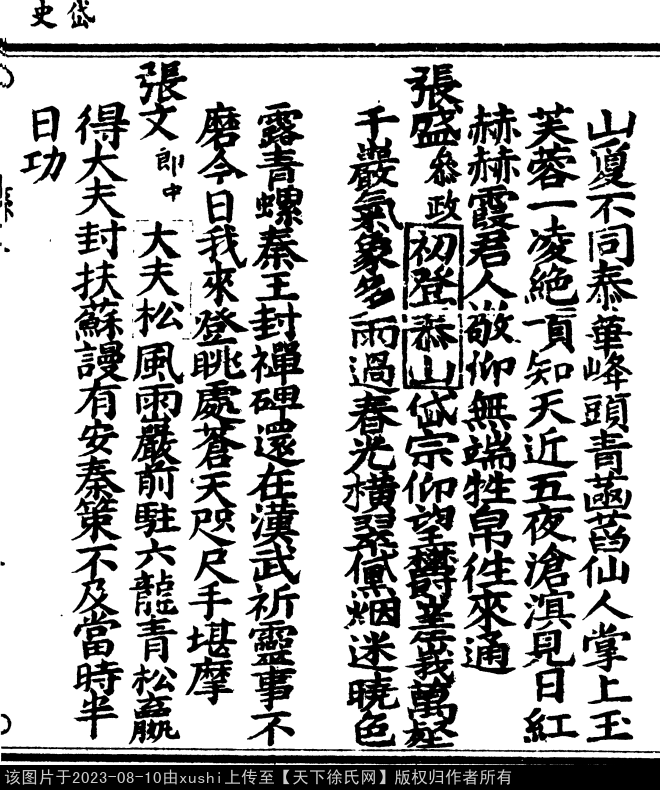 岱史
山夏不同泰華峰頭青菡萏仙人掌上玉
芙蓉一凌絶頂知天近五夜滄溟見日紅
赫赫霞君人敬仰無端牲帛徃來通
張盛叅政初登泰山岱宗仰望欝峚峩萬壑
千巖氣象多雨過春光横翠黛烟迷曉色
露青螺秦王封禪碑還在漢武祈靈事不
磨今日我來登眺處蒼天咫尺手堪摩
張文郎中大夫松風雨巖前駐六龍青松贏
得大夫封扶蘇謾有安秦策不及當時半
日功
该图片于2023-08-10由xushi上传至【天下徐氏网】版权归作者所有